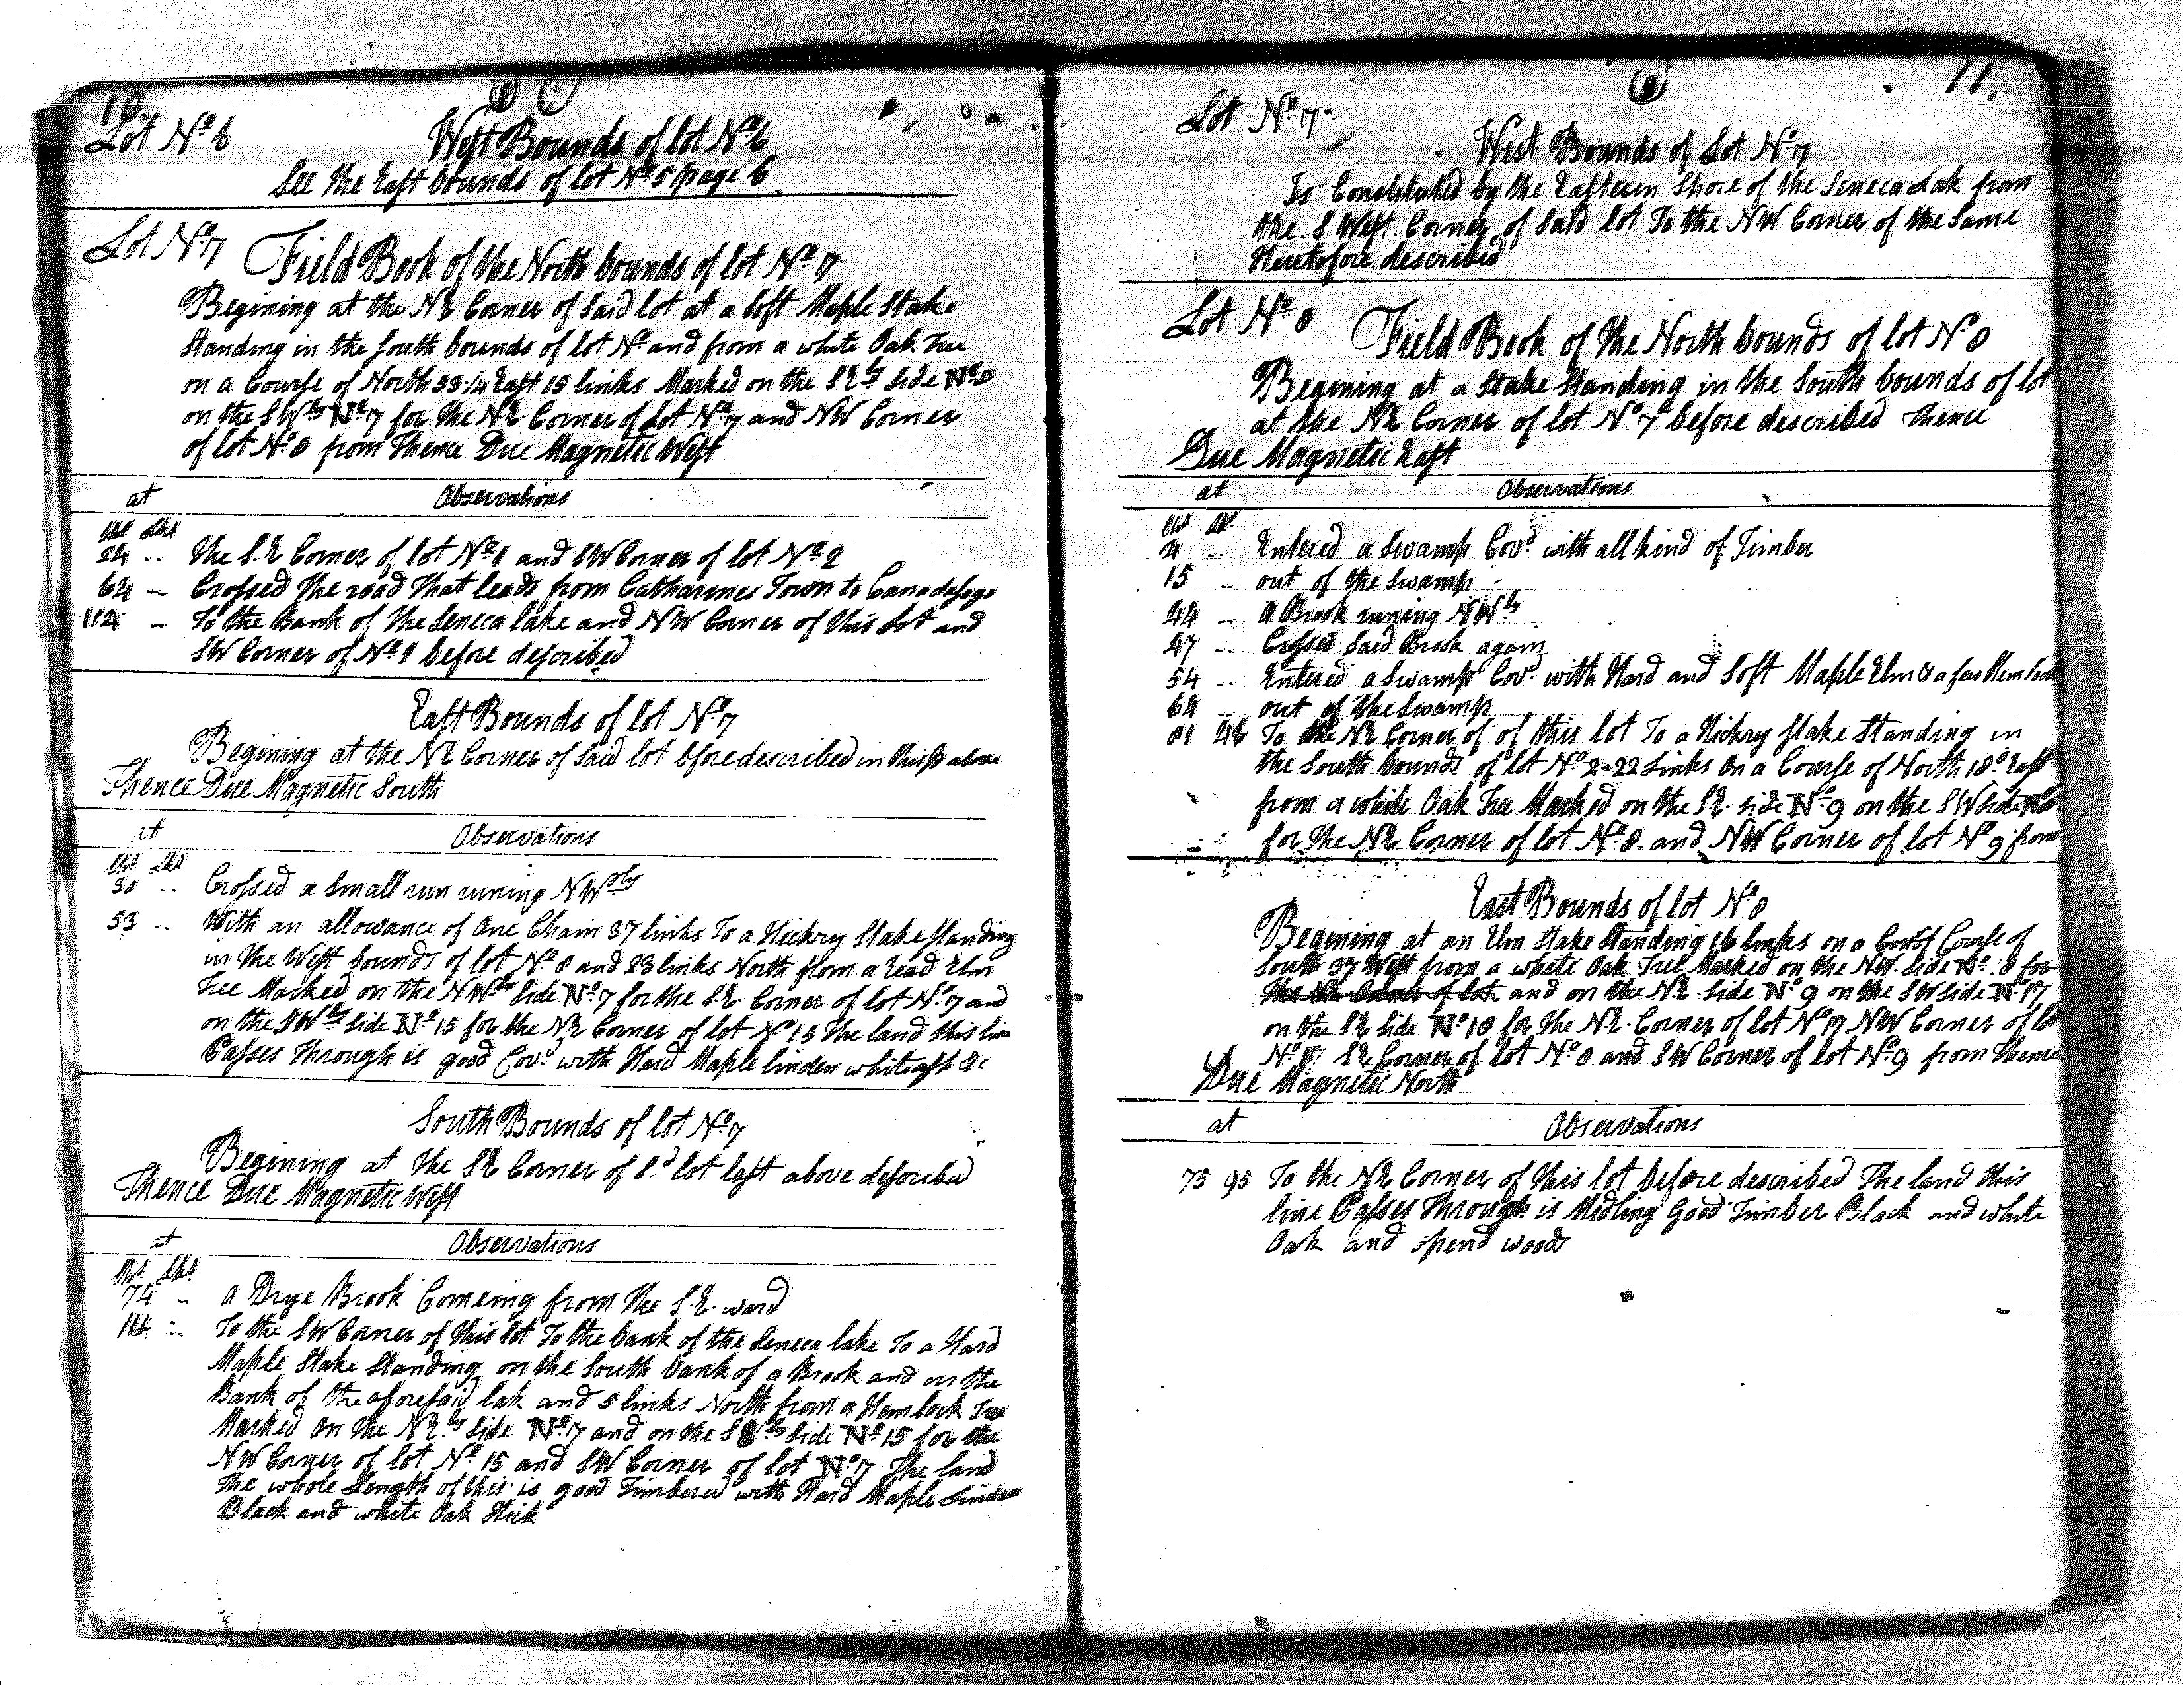 10.
Lot Nº 6
West Bounds of lot Nº 6
See the East bounds of lot Nº 5 page 6
Lot Nº 7
Field Book of the North bounds of lot Nº 7
Begining at the NE Corner of said lot at a soft Maple Stake
Standing in the South bounds of lot Nº and from a white Oak Tree
on a Course of North East 15 links Marked on the SEly Side Nº 8
on the SWly Nº 7 for the NE Corner of Lot Nº 7 and NW Corner
of lot Nº 8 from Thence Due Magnetic West
at Observations
Chs Lks
24 .. the S.E Corner of lot Nº 1 and SW Corner of lot Nº 2
64 – Crossed the road that leads from Catharines Town to Canadasego
112 – To the Bank of the Seneca lake and NW Corner of this Lot and
SW Corner of Nº 1 before described
East Bounds of lot Nº 7
Begining at the NE Corner of said lot bfore described in this above
Thence Due Magnetic South
at Observations
Chs Lks
30 .. Crossed a Small run runing NWely
53 .. With an allowance of One Chain 37 links To a Hickory Stake Standing
in the West bounds of lot Nº 8 and 23 links North from a Elm
Tree Marked on the NWly Side Nº 7 for the SE Corner of lot Nº 7 and
on the SWly Side Nº 15 for the NE Corner of lot Nº 15 The land this line
Passes Through is good Covd with Hard Maple linden whiteash &c
South Bounds of lot Nº 7
Begining at the SE Corner of Sd lot last above described
Thence Due Magnetic West
at Observations
Chs Lks
74 – a Drye Brook Comeing from the S.E. ward
To the SW Corner of this lot To the bank of the Seneca lake To a Hard
Maple Stake Standing on the South bank of a Brook and on the
Bank of the aforesaid lak and 5 links North from a Hemlock Tree
Marked on the NEly Side Nº 7 and on the Side Nº 15 for the
NW Corner of lot Nº 15 and SW Corner of lot Nº 7 The land
The whole Length of this is good Timbered with Hard Maple Linden
Black and white Oak Hick
11.
Lot Nº 7
West Bounds of Lot Nº 7
Is Constituted by the Eastern Shore of the Seneca Lak from
the S West Corner of Said lot To the NW Corner of the Same
Heretofore described
Lot Nº 8
Field Book of the North bounds of lot Nº 8
Begining at a Stake Standing in the South bounds of lot
at the NE Corner of lot Nº 7 before described Thence
Due Magnetic East
at Observations
Chs Lks
4 .. Entered a Swamp Covd with all kind of Timber
15 .. out of the Swamp
44 .. A Brook runing NWly
47 .. Crosses Said Brook again
54 .. Entered a Swamp Covd with Hard and Soft Maple Elm & a few Hemlock
64 out of the Swamp
81 To the NE Corner of of this lot To a Hickry Stake Standing in
the South bounds of lot Nº 2 22 Links on a Course of North 18º East
from a white Oak Tree Marked on the S.E. side Nº 9 on the SW Side Nº 8
for the NE Corner of lot Nº 8 and NW Corner of lot Nº 9 from
East Bounds of lot Nº 8
Begining at an Elm Stake Standing 16 links on a Course of
South 37 West from a white Oak Tree Marked on the NW Side Nº 8 for
the Corner of lot and on the NE side Nº 9 on the SW side Nº 17
on the SE Side Nº 18 for the NE Corner of lot Nº 17 NW Corner of lot
Nº 18 SE Corner of lot Nº 8 and SW Corner of lot Nº 9 from Thence
Due Magnetic North
at Observations
75 95 To the NE Corner of this lot before described The land this
line Passes Through is Midling Good Timber Black and white
Oak and opend woods